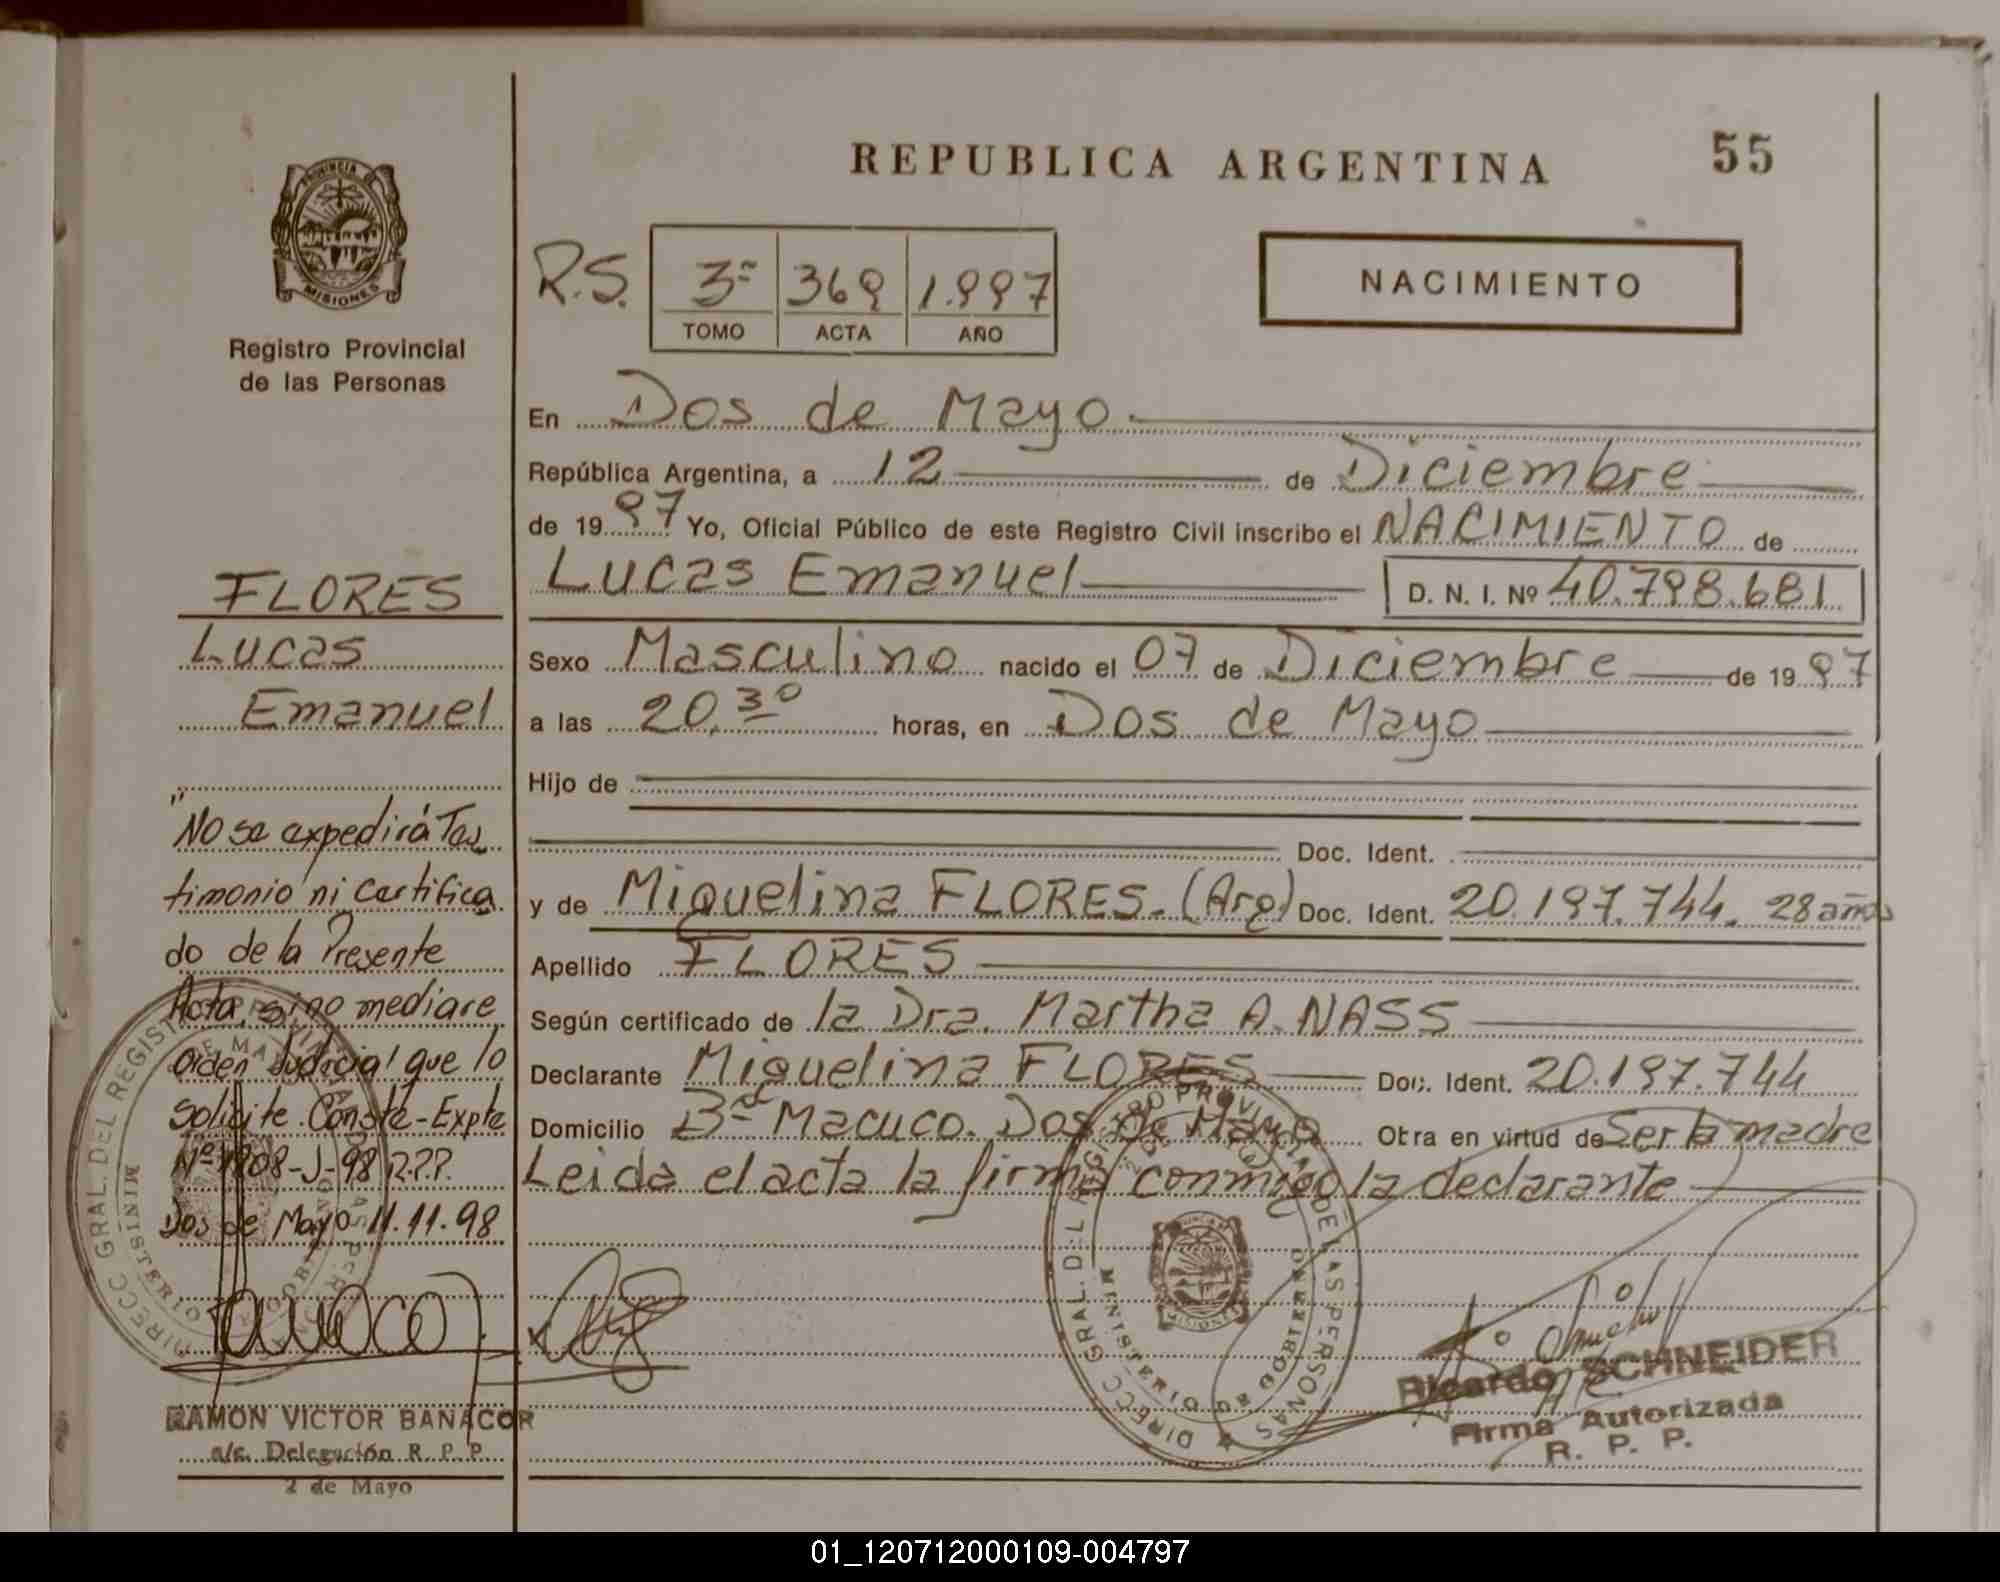 REPUBLICA ARGENTINA
55
PROVINCIA DE
MISIONES
Registro Provincial
de las Personas
R.S.
3º 369 1.997
TOMO ACTA AÑO
NACIMIENTO
En Dos de Mayo
República Argentina, a 12 de Diciembre
de 1997 Yo, Oficial Público de este Registro Civil inscribo el NACIMIENTO de
Lucas Emanuel D. N. I. Nº 40.798.681
Sexo Masculino nacido el 07 de Diciembre de 1997
a las 20,30 horas, en Dos de Mayo
Hijo de
Doc. Ident.
y de Miguelina FLORES. (Arg) Doc. Ident. 20.197.744. 28 años
Apellido FLORES
Según certificado de la Dra. Martha A. NASS
Declarante Miguelina FLORES Doc. Ident. 20.197.744
Domicilio Bº Macuco. Dos de Mayo Otra en virtud de Ser la madre
Leida el acta la firma conmigo la declarante
FLORES
Lucas
Emanuel
"No se expedirá Tes
timonio ni certifica
do de la Presente
Acta, sino mediare
orden Judicial que lo
solicite. Conste-Expte
Nº 1908-J-98 R.P.P.
Dos de Mayo 11.11.98
RAMON VICTOR BANACOR
a/c. Delegación R. P. P.
2 de Mayo
DIRECC GRAL. DEL REGISTRO PROVINCIAL DE LAS PERSONAS
MINISTERIO DE GOBIERNO
MISIONES
Ricardo SCHNEIDER
Firma Autorizada
R. P. P.
01_120712000109-004797